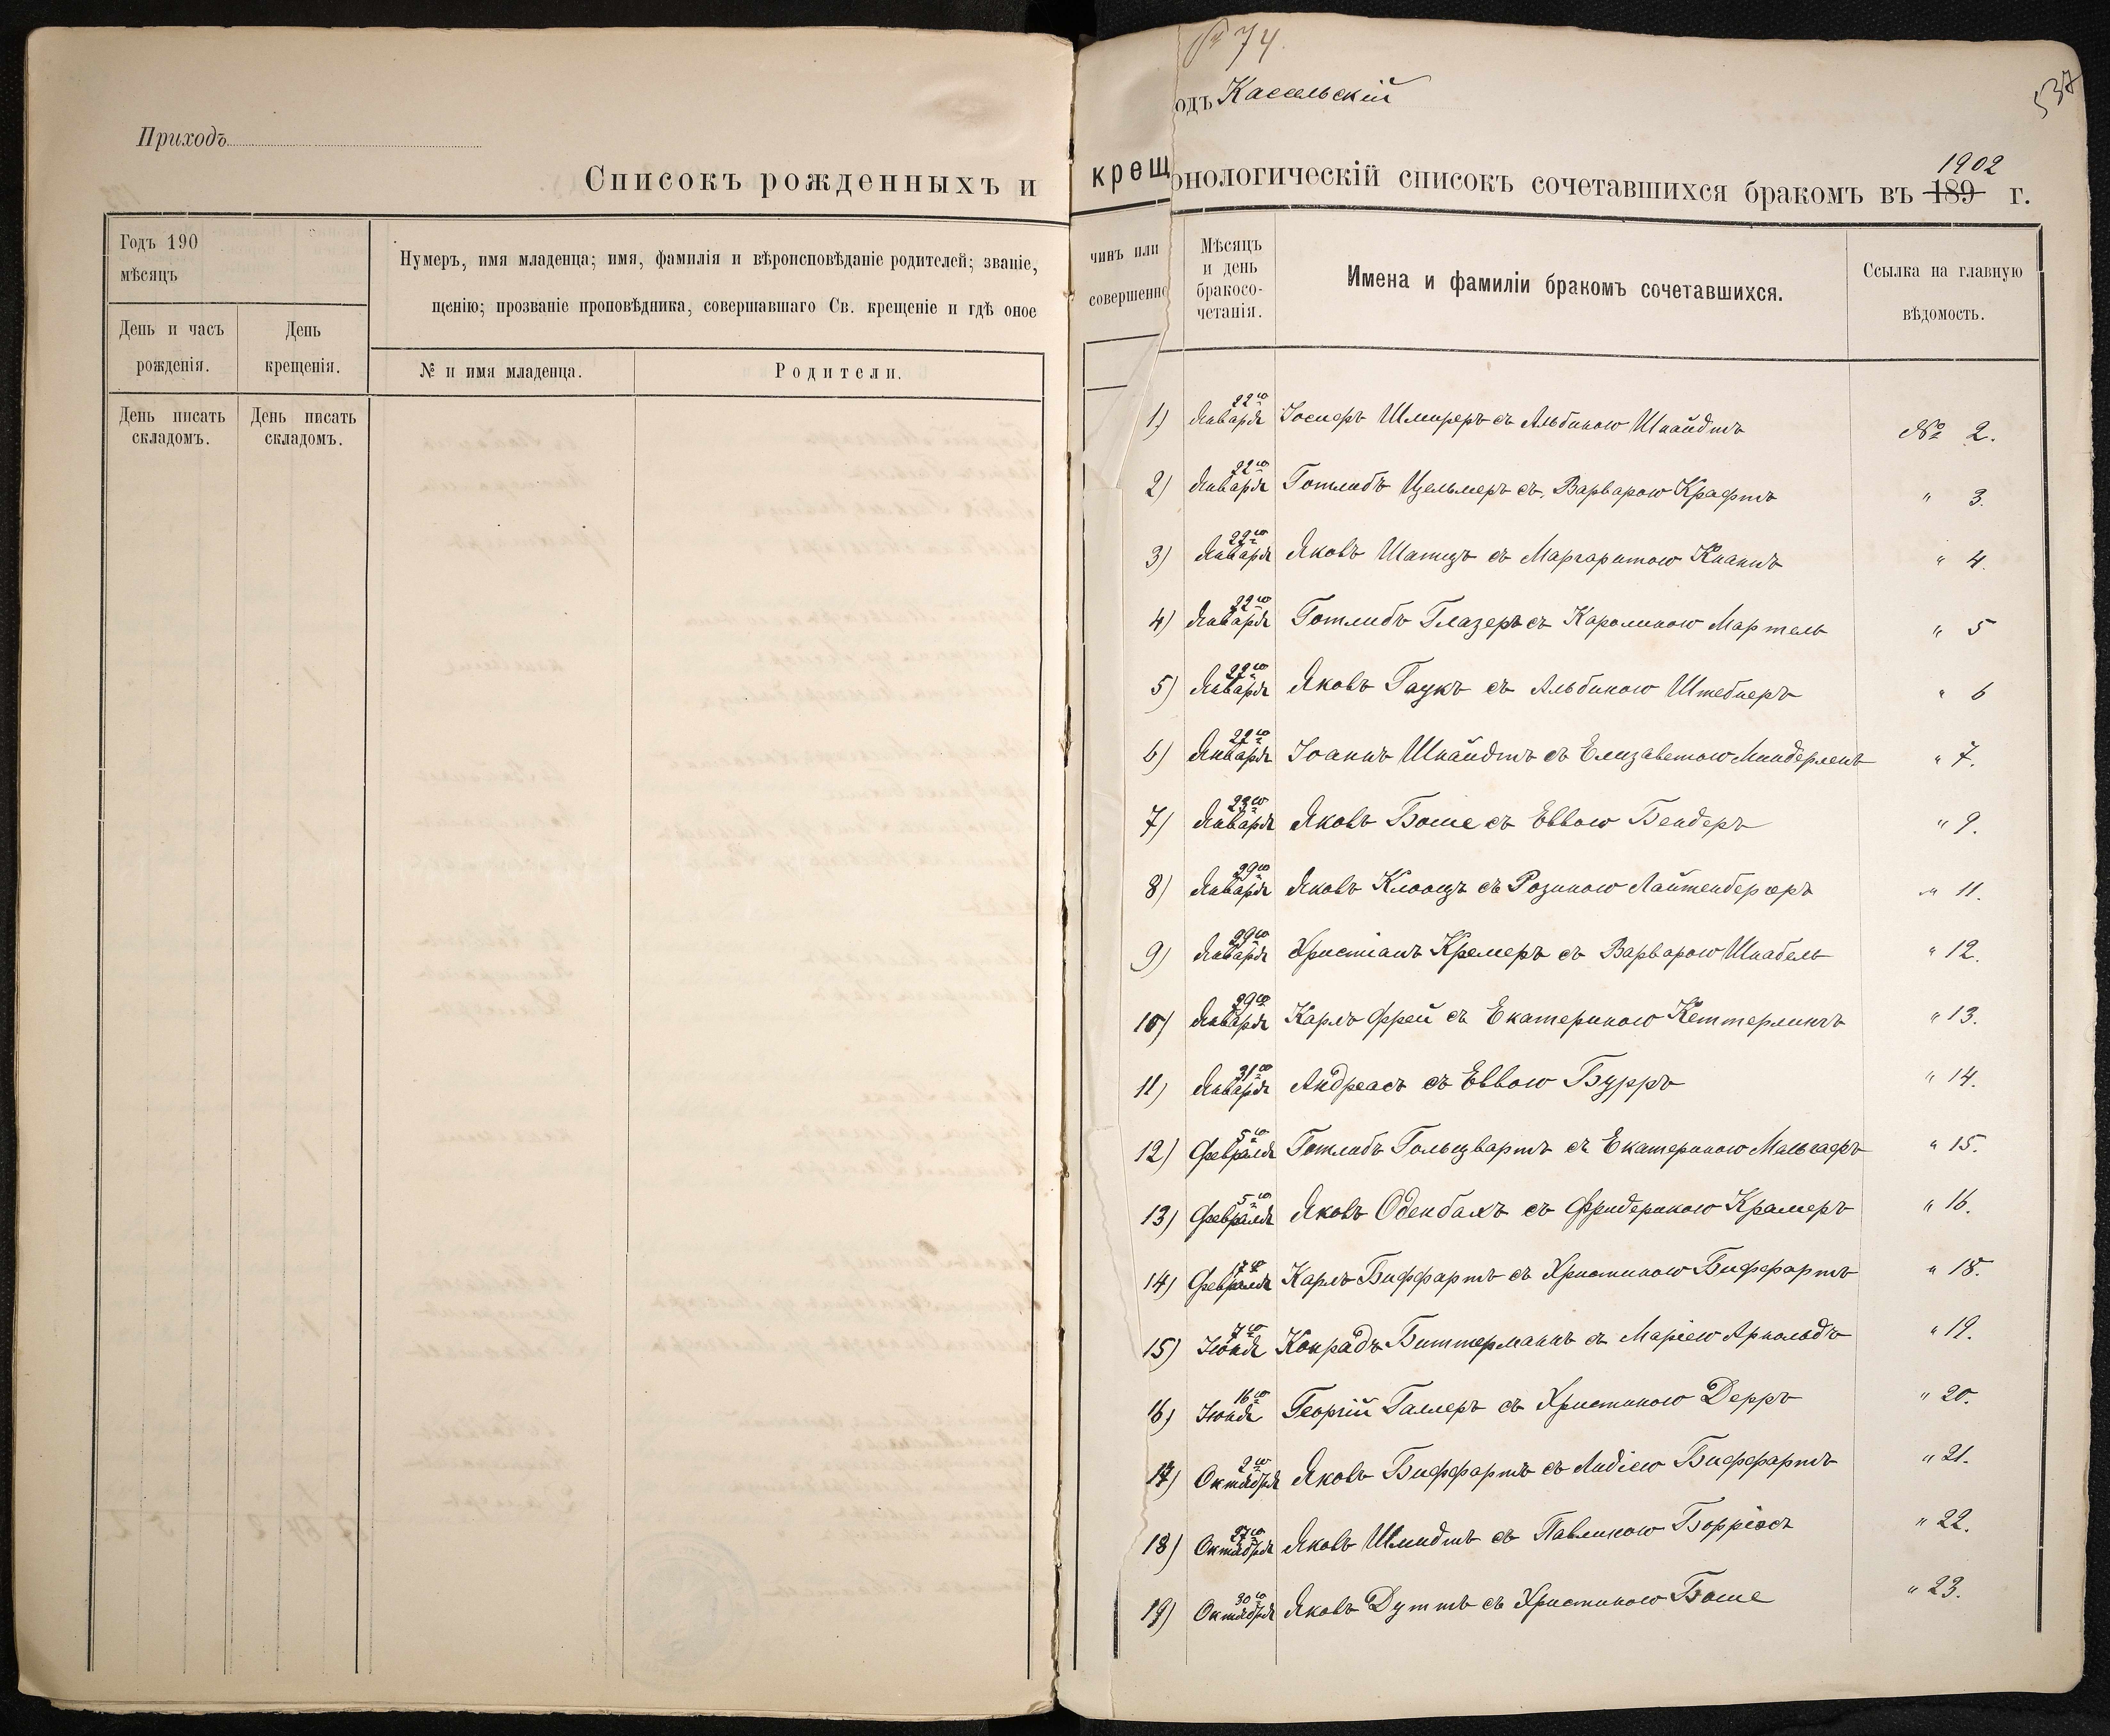 Приходъ
Списокъ рожденныхъ и
Годъ 190
мѣсяцъ
Нумеръ, имя младенца; имя, фамилія и вѣроисповѣданіе родителей; званіе,
щенію; прозваніе проповѣдника, совершавшаго Св. крещеніе и гдѣ оное
День и часъ
рожденія.
День
крещенія.
№ и имя младенца.
Родители.
День писать
складомъ.
День писать
складомъ.
крещ
чинъ или
совершенно
74.
537
одъ Кассельскій
онологическій списокъ сочетавшихся бракомъ въ 189 1902 г.
Мѣсяцъ
и день
бракосо-
четанія.
Имена и фамиліи бракомъ сочетавшихся.
Ссылка на главную
вѣдомость.
1) 22го Января Шмиреръ съ Альбиною Шнайдтъ № 2.
2) 22го Января Готлибъ Цельмеръ съ Варварою Крафтъ " 3.
3) 22го Января Яковъ Шатцъ съ Маргаритою Кнаишъ " 4.
4) 22го Января Готлибъ Глазеръ съ Каролиною Мартель " 5
5) 22го Января Яковъ Гаукъ съ Альбиною Штебнеръ " 6
6) 22го Января Іоаннъ Шнайдтъ съ Елизаветою Миндерлейъ " 7.
7) 23го Января Яковъ Боше съ Еввою Бендеръ " 9.
8) 29го Января Яковъ Клоотцъ съ Розиною Лайтенбергеръ " 11.
9) 29го Января Христіанъ Кремеръ съ Варварою Шнабель " 12.
10) 29го Января Карлъ Фрей съ Екатериною Кеттерлингъ " 13.
11) 31го Января Андреасъ съ Еввою Бурръ " 14.
12) 5го Февраля Готлибъ Гольцвартъ съ Екатериною " 15.
13) 5го Февраля Яковъ Оденбахъ съ Фридерикою Крамеръ " 16.
14) 17го Февраля Карлъ Биффартъ съ Христиною Биффартъ " 18.
15) 7го Іюня Конрадъ Биттерманнъ съ Маріею Арнольдъ " 19.
16) 16го Іюня Георгій Галлеръ съ Христиною Дерръ " 20.
17) 2го Октября Яковъ Биффартъ съ Лидіею Биффартъ " 21.
18) 27го Октября Яковъ Шмидтъ съ Павлиною Борріосъ " 22.
19) 30го Октября Яковъ Дуттъ съ Христиною Боше " 23.